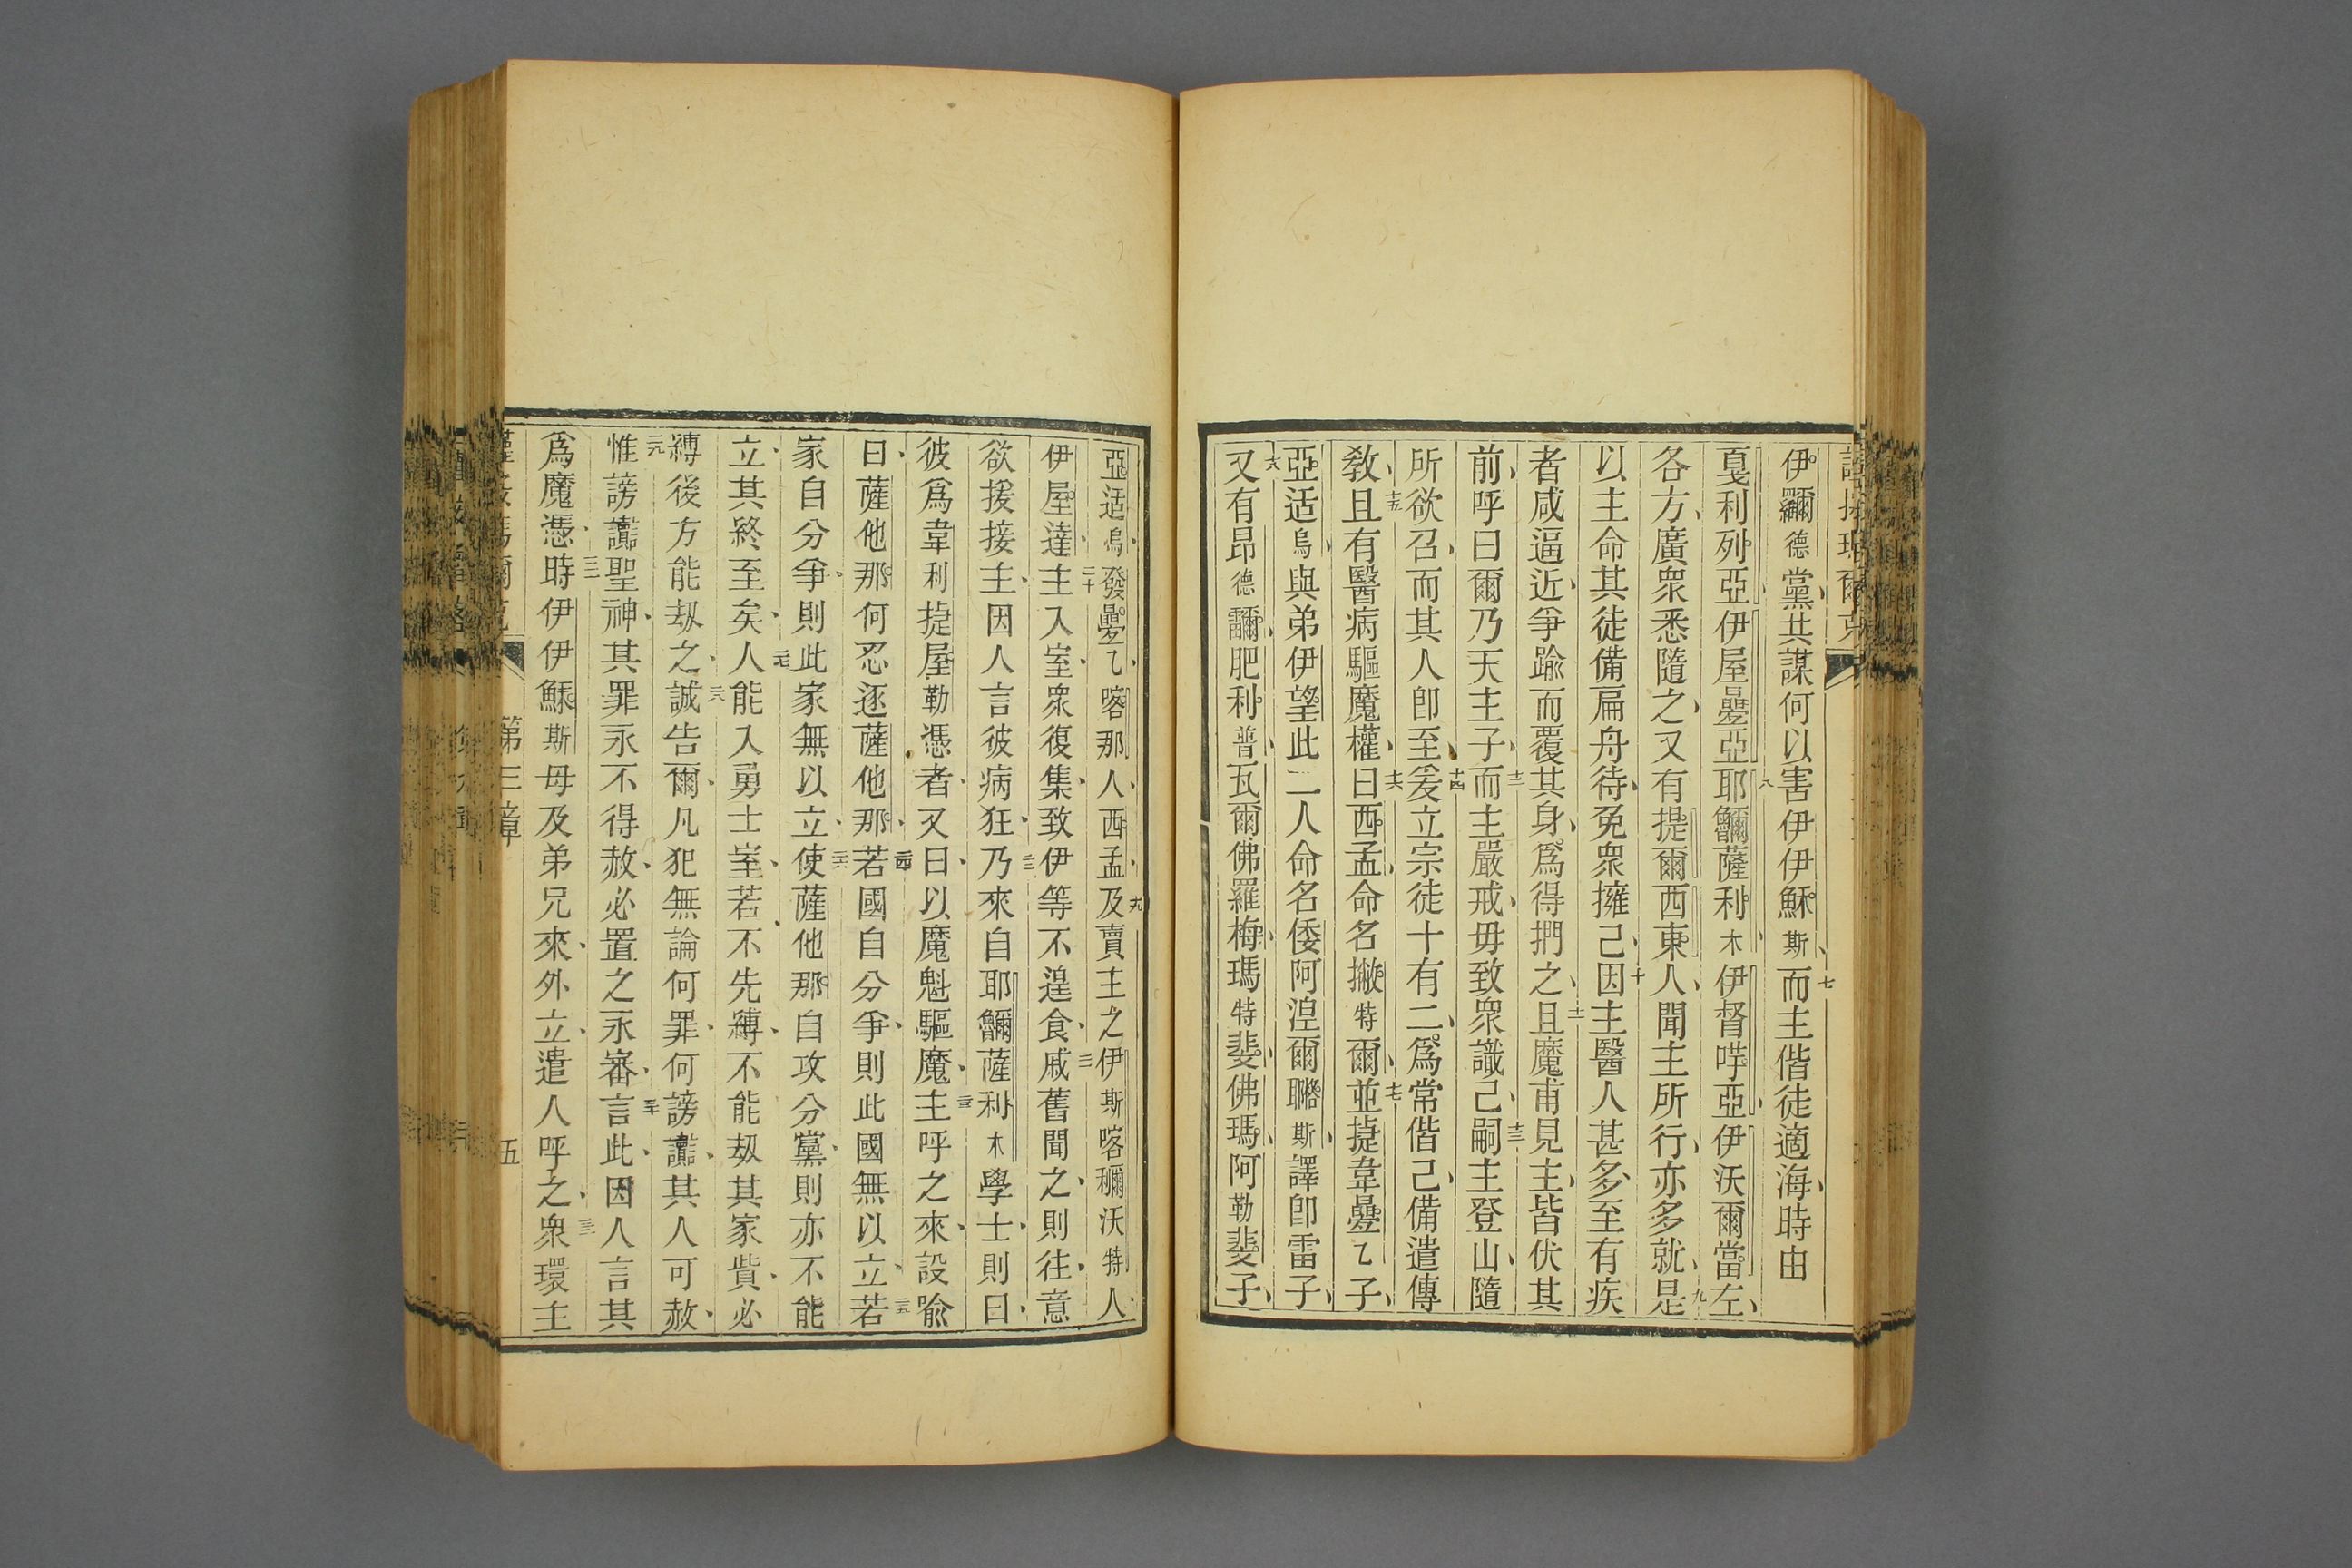 伊𤅀德黨共謀何以害伊伊穌斯七而主偕徒適海時由
戛利列亞伊屋疊亞八耶𤅀薩利木伊督哶亞伊沃爾當左
各方廣衆悉隨之又有提爾西東人聞主所行亦多就九是
以主命其徒備扁舟待免衆擁己十因主醫人甚多至有疾
者咸逼近爭踰而覆其身爲得捫之十一且魔甫見主皆伏其
前呼曰爾乃天主子十二而主嚴戒毋致衆識己十三嗣主登山隨
所欲召而其人卽至十四爰立宗徒十有二爲常偕己備遣傳
敎十五且有醫病驅魔權十六曰西孟命名撇特爾十七並提韋疊乙子
亞适烏與弟伊望此二人命名倭阿湼爾聯斯譯卽雷子
十八又有昂德爾肥利普瓦爾佛羅梅瑪特斐佛瑪阿勒斐子
亞适烏發疊乙喀那人西孟十九及賣主之伊斯喀穪沃特人
伊屋達二十主入室衆復集致伊等不遑食二一戚舊聞之則往意
欲援接主因人言彼病狂二二乃來自耶𤅀薩利木學士則曰
彼爲韋利提屋勒憑者又曰以魔魁驅魔二三主呼之來設喩
曰薩他那何忍逐薩他那二四若國自分爭則此國無以立二五若
家自分爭則此家無以立二六使薩他那自攻分黨則亦不能
立其終至矣二七人能入勇士室若不先縛不能刼其家貲必
縛後方能刼之二八誠告爾凡犯無論何罪何謗讟其人可赦
二九惟謗讟聖神其罪永不得赦必置之永審三十言此因人言其
爲魔憑三一時伊伊穌斯母及弟兄來外立遣人呼之三二衆環主
第三章
五